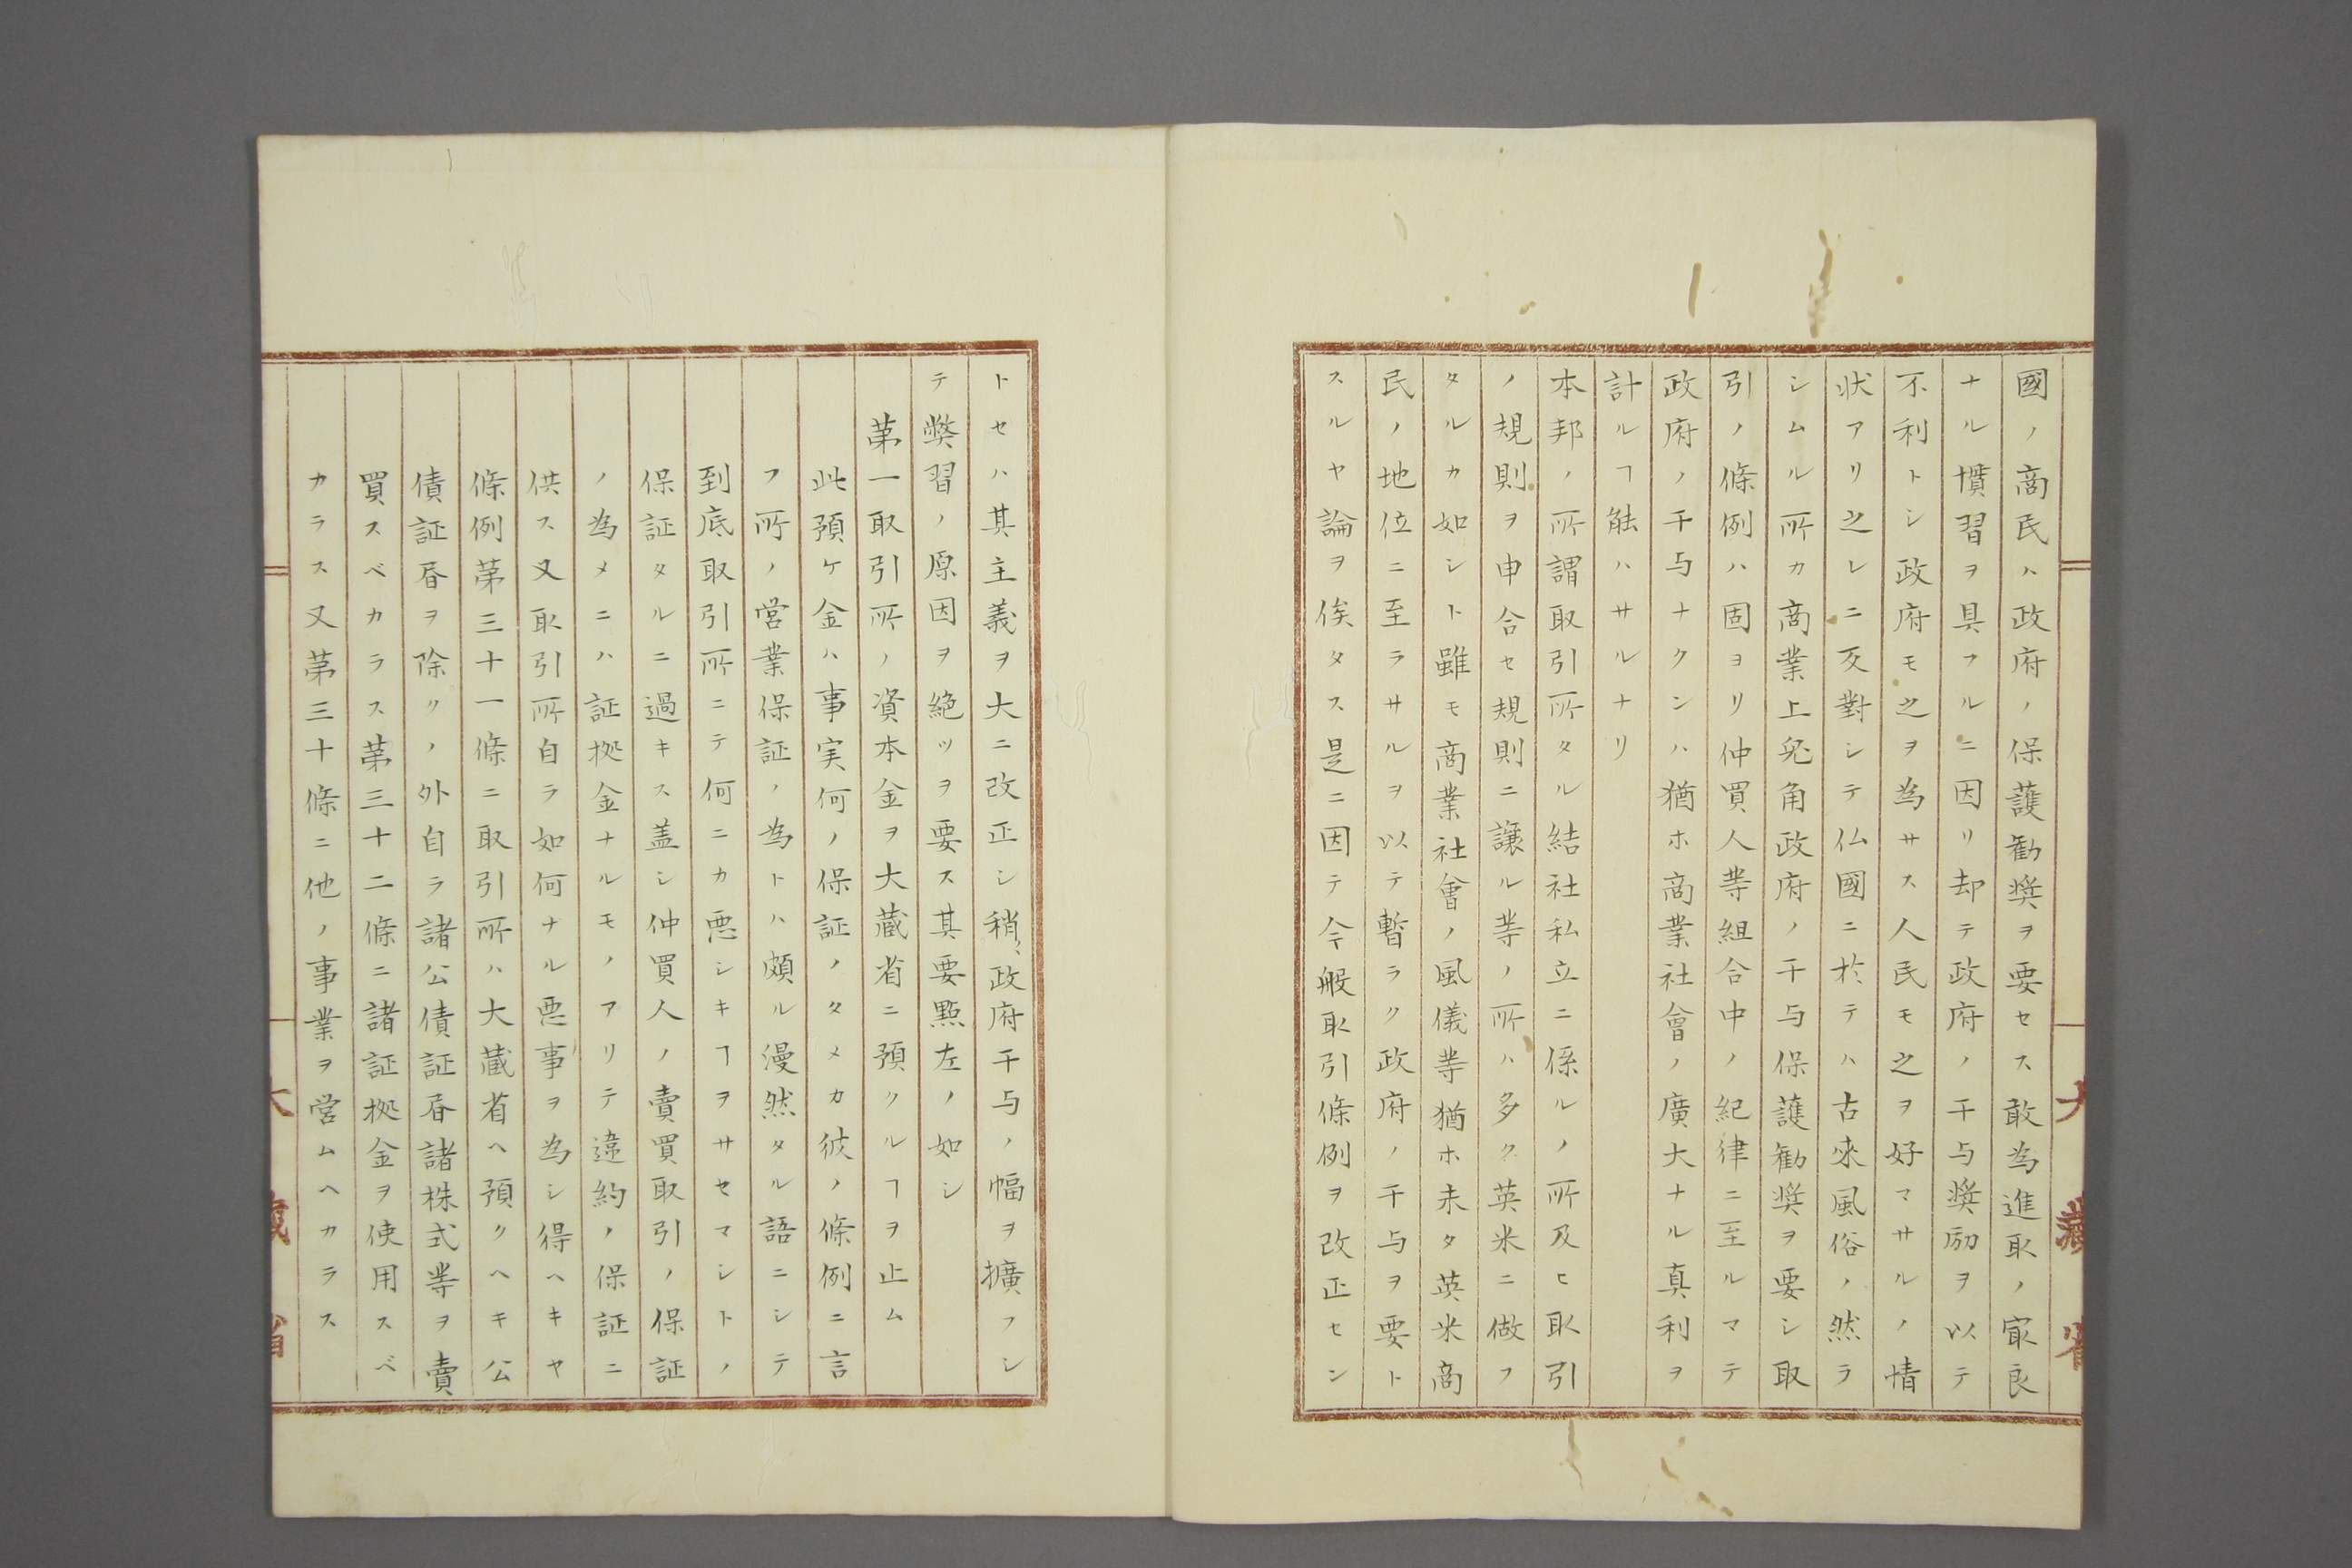 國ノ商民ハ政府ノ保護勧奨ヲ要セス敢為進取ノ㝡良
ナル慣習ヲ具フルニ因リ却テ政府ノ干与奨励ヲ以テ
不利トシ政府モ之ヲ為サス人民モ之ヲ好マサルノ情
状アリ之レニ反對シテ仏國ニ於テハ古来風俗ノ然ラ
シムル所カ商業上兎角政府ノ干与保護勧奨ヲ要シ取
引ノ條例ハ固ヨリ仲買人等組合中ノ紀律ニ至ルマテ
政府ノ干与ナクンハ猶ホ商業社會ノ廣大ナル真利ヲ
計ルヿ能ハサルナリ
本邦ノ所謂取引所タル結社私立ニ係ルノ所及ヒ取引
ノ規則ヲ申合セ規則ニ譲ル等ノ所ハ多ク英米ニ倣フ
タルカ如シト雖モ商業社會ノ風儀等猶ホ未タ英米商
民ノ地位ニ至ラサルヲ以テ暫ラク政府ノ干与ヲ要ト
スルヤ論ヲ俟タス是ニ因テ今般取引條例ヲ改正セン
トセハ其主義ヲ大ニ改正シ稍〻政府干与ノ幅ヲ擴フシ
テ弊習ノ原因ヲ絶ツヲ要ス其要點左ノ如シ
第一取引所ノ資本金ヲ大蔵省ニ預クルヿヲ止ム
此預ケ金ハ事実何ノ保証ノタメカ彼ノ條例ニ言
フ所ノ営業保証ノ為トハ頗ル漫然タル語ニシテ
到底取引所ニテ何ニカ悪シキヿヲサセマシトノ
保証タルニ過キス盖シ仲買人ノ賣買取引ノ保証
ノ為メニハ証拠金ナルモノアリテ違約ノ保証ニ
供ス又取引所自ラ如何ナル悪事ヲ為シ得ヘキヤ
條例第三十一條ニ取引所ハ大蔵省ヘ預クヘキ公
債証書ヲ除クノ外自ラ諸公債証書諸株式等ヲ賣
買スベカラス第三十二條ニ諸証拠金ヲ使用スベ
カラス又第三十條ニ他ノ事業ヲ営ムヘカラス
大藏省